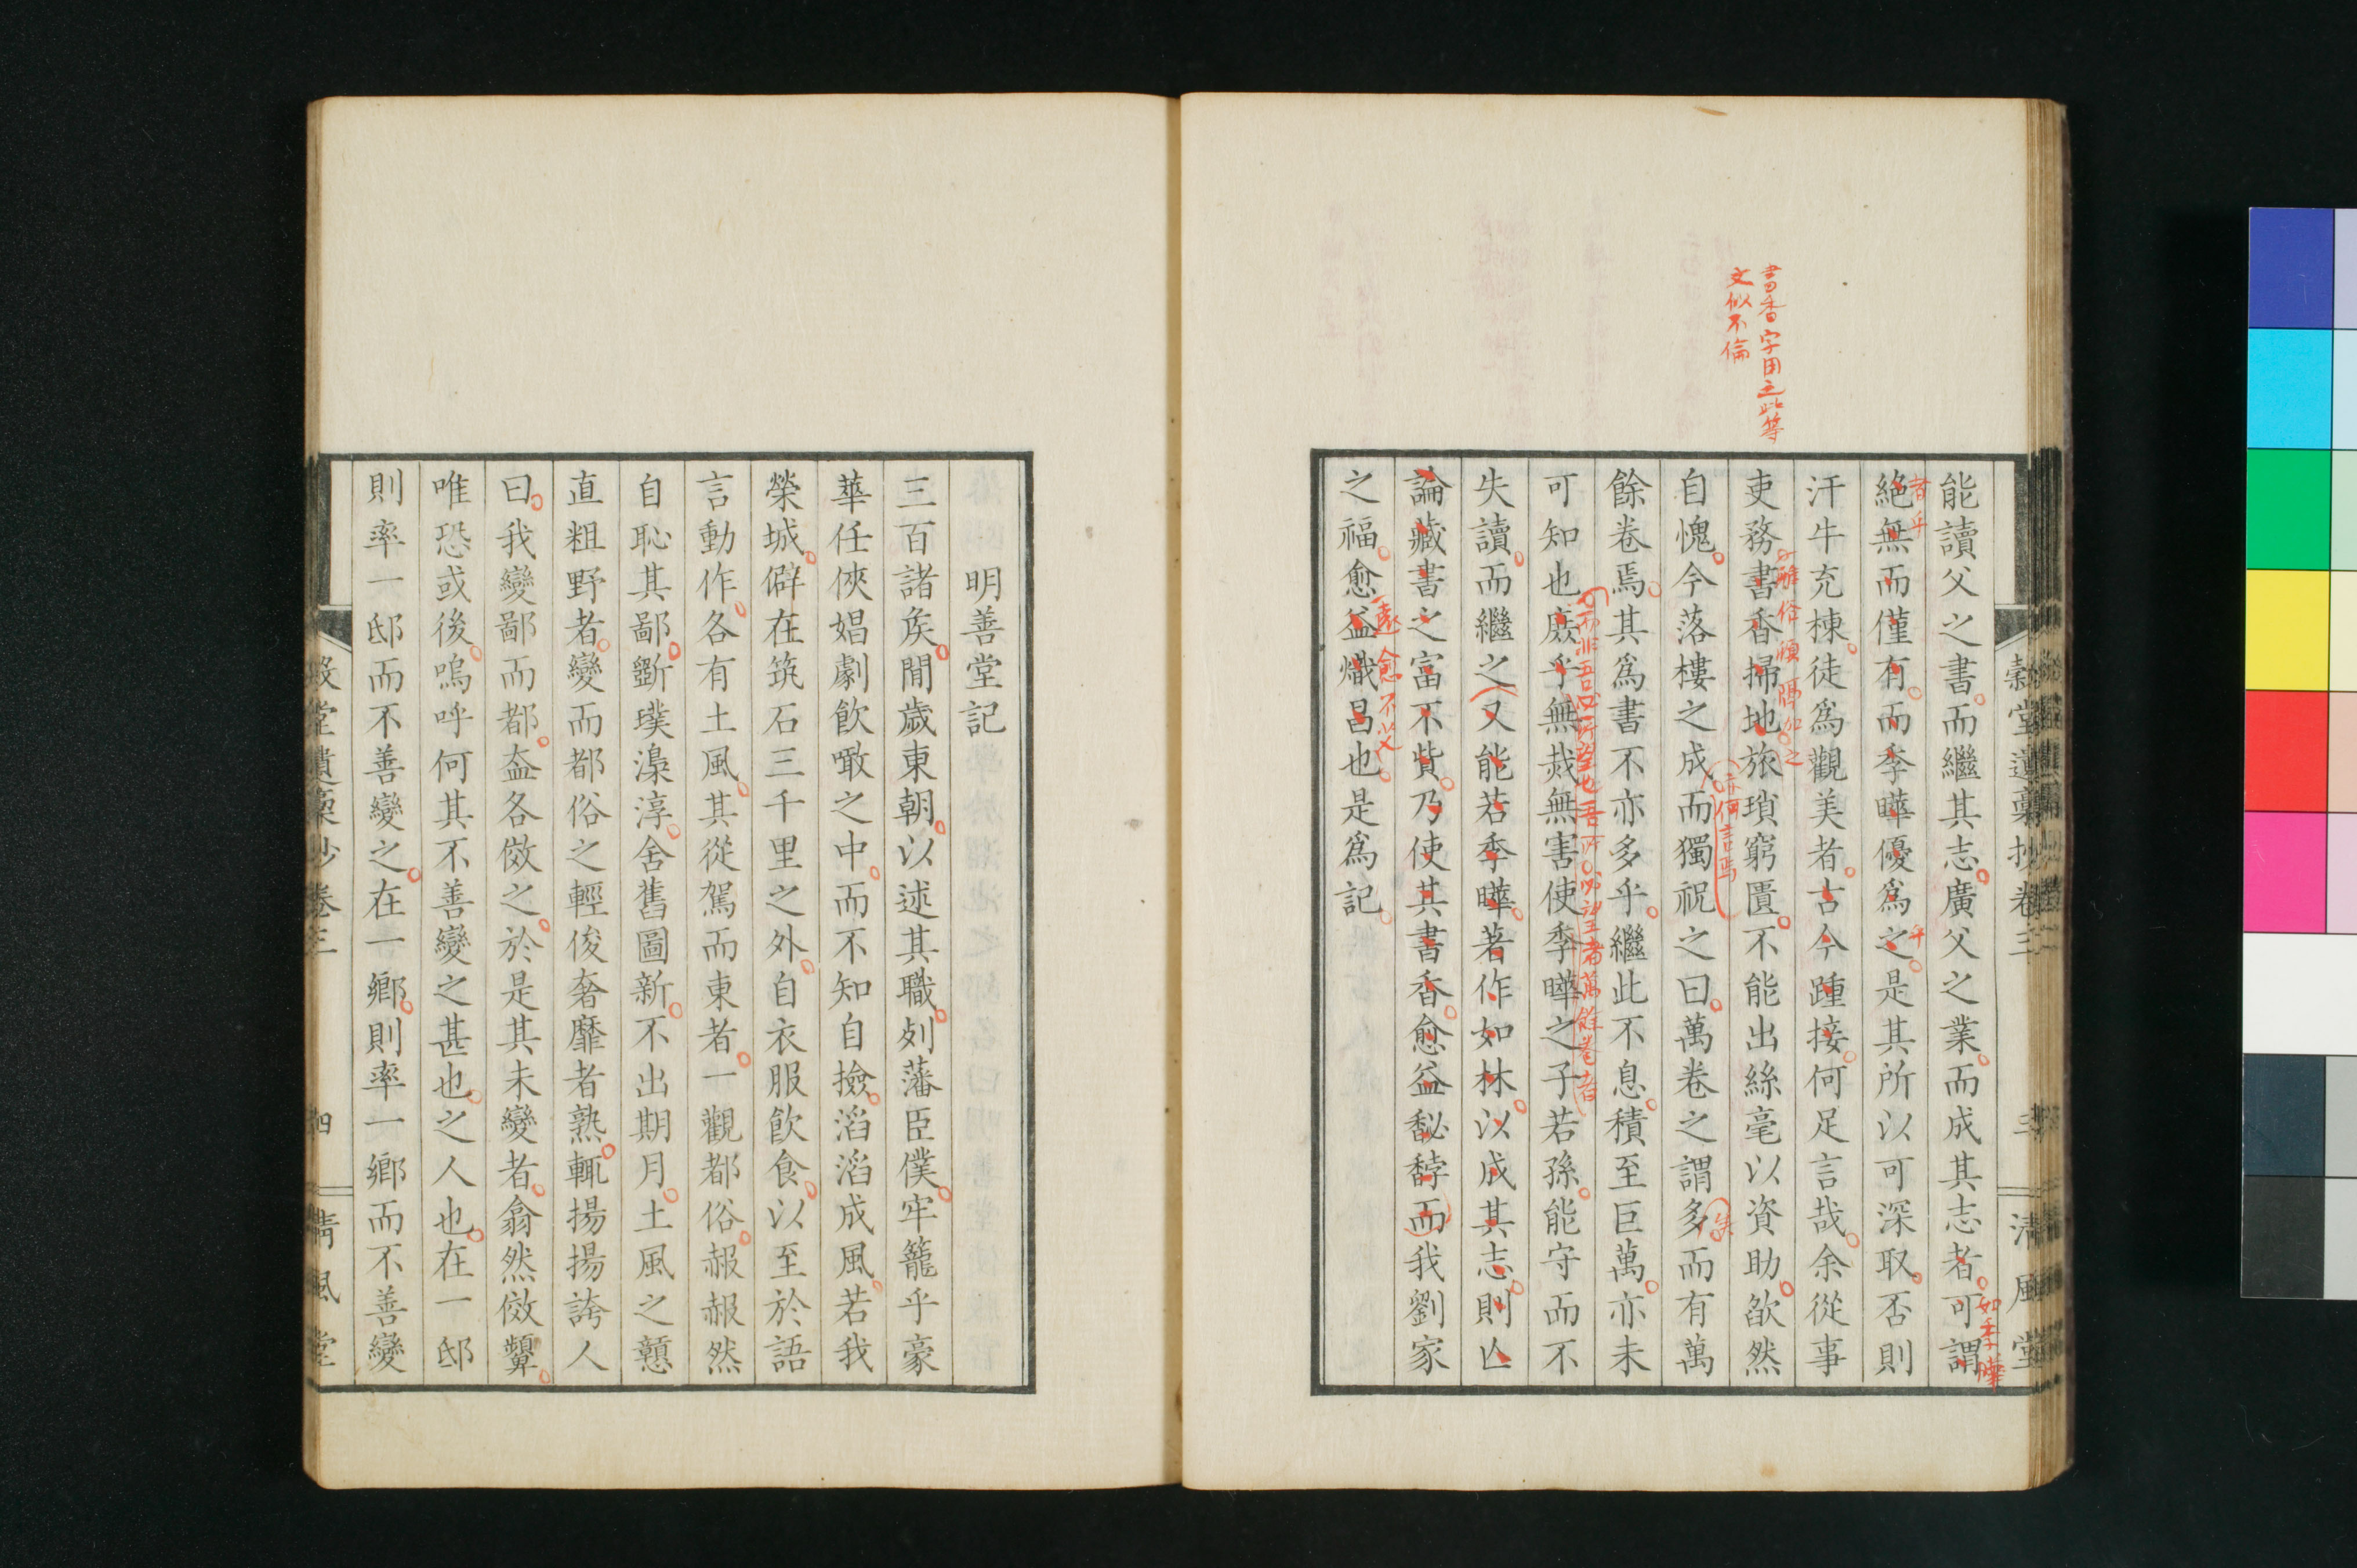 書香字用之此等
文似不倫
能讀父之書而繼其志廣父之業而成其志者可謂
絕無而僅有而季曄優爲之是其所以可深取否則
汗牛充棟徒爲觀美者古今踵接何足言哉余從事
吏務書香掃地旅瑣窮匱不能出絲毫以資助欿然
自愧今落樓之成而獨祝之曰萬卷之謂多而有萬
餘卷焉其爲書不亦多乎繼此不息積至巨萬亦未
可知也庶乎無烖無害使季曄之子若孫能守而不
失讀而繼之又能若季曄著作如林以成其志則亾
論藏書之富不貲乃使其書香愈益馝馞而我劉家
之福愈益熾昌也是爲記
如季曄
者乎
乎
亦何言焉
矣
遠愈不文
穀堂遺稾抄卷三
三
清風堂
明善堂記
三百諸矦間歲東朝以述其職列藩臣僕牢籠乎豪
華任俠娼劇飲噉之中而不知自撿滔滔成風若我
榮城僻在筑石三千里之外自衣服飲食以至於語
言動作各有土風其從駕而東者一觀都俗赧赧然
自恥其鄙斲璞澡淳舍舊圖新不出期月土風之戇
直粗野者變而都俗之輕俊奢靡者熟輒揚揚誇人
曰我變鄙而都盍各倣之於是其未變者翕然倣顰
唯恐或後嗚呼何其不善變之甚也之人也在一邸
則率一邸而不善變之在一鄉則率一鄉而不善變
穀堂遺稾抄卷三
四
清風堂